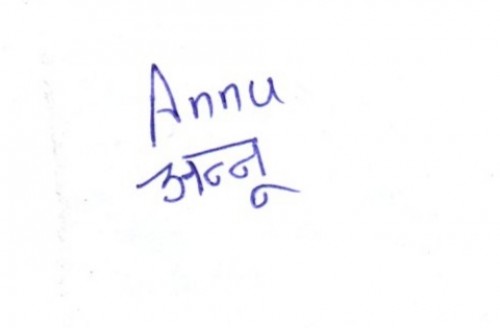 Annu
अन्नू